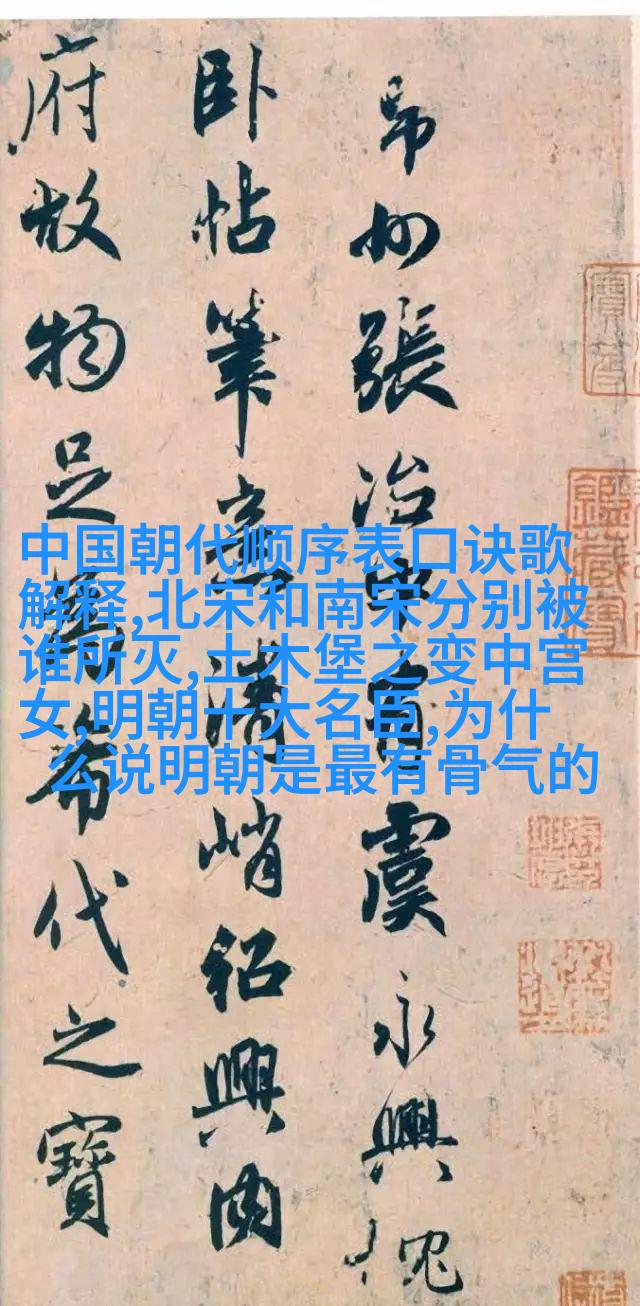 州張治中有虞永興愧
卧帖筆意清峭紹興内
府故物足為希代之寶
中国朝代顺序表口诀歌
解释,北宋和南宋分别被
谁所灭,土木堡之变中宫
女,明朝十大名臣,为什
么说明朝是最有骨气的